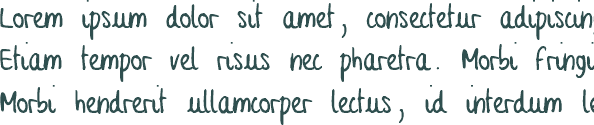 Lorem ipsum dolor sit amet, consectetur adipiscing
Etiam tempor vel risus nec pharetra. Morbi fringi
Morbi hendrerit ullamcorper lectus, id interdum le